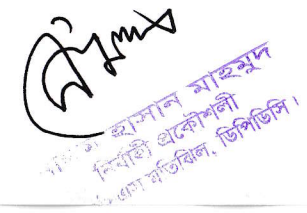 হাসান মাহমুদ
নির্বাহী প্রকৌশলী
এস মতিঝিল, ডিপিডিসি।